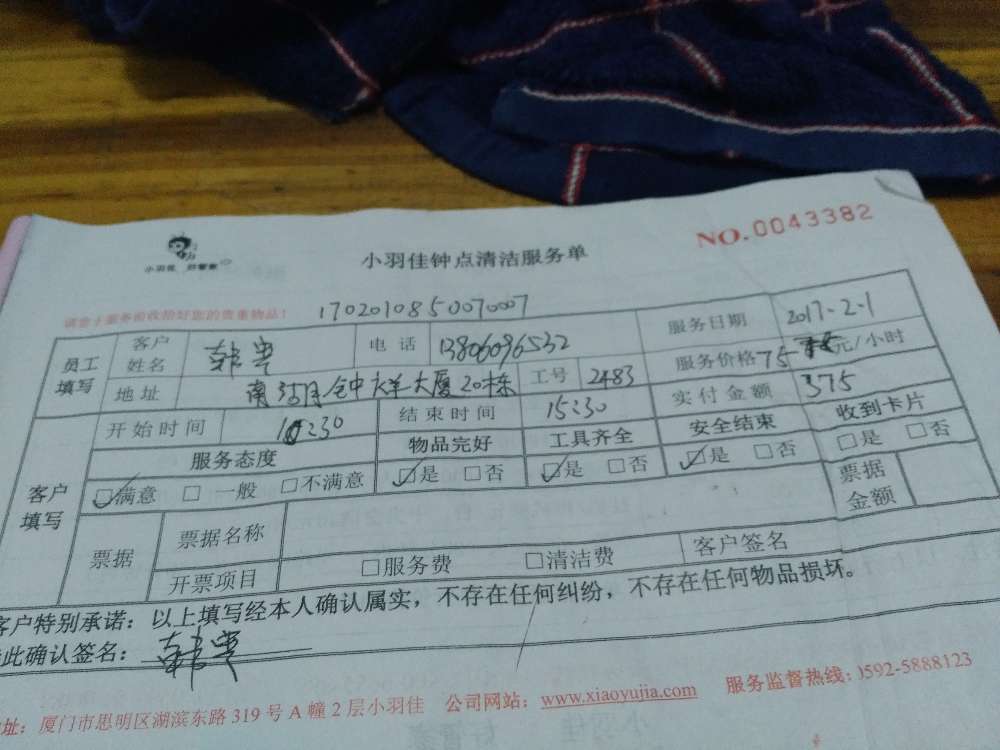 小羽佳钟点清洁服务单
NO.0043382
小羽佳 好管家
1702010850070007
客户姓名 电话 13806096532 服务日期 2017-2-1
员工填写
地址 大厦20栋 工号 2483 服务价格 75 元/小时
实付金额 375
开始时间 10:30 结束时间 15:30
服务态度 物品完好 工具齐全 安全结束 收到卡片
☑满意 □一般 □不满意 ☑是 □否 ☑是 □否 ☑是 □否 □是 □否
客户填写
票据 票据名称 票据金额
开票项目 □服务费 □清洁费 客户签名
客户特别承诺：以上填写经本人确认属实，不存在任何纠纷，不存在任何物品损坏。
此确认签名：
址：厦门市思明区湖滨东路319号A幢2层小羽佳 公司网站：www.xiaoyujia.com 服务监督热线：0592-5888123